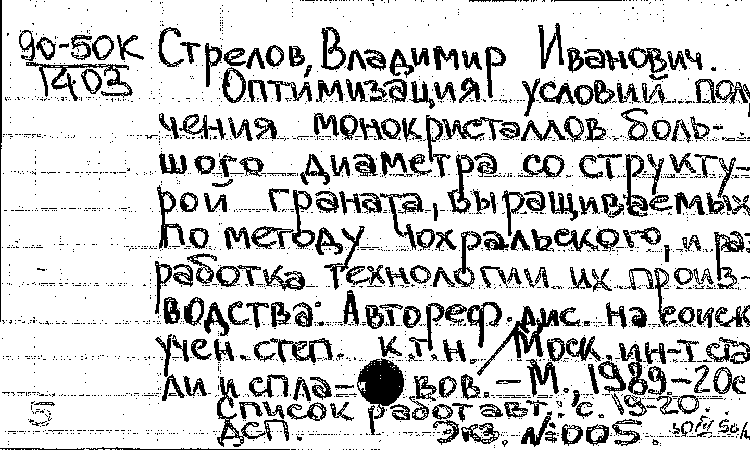 90-50К Стрелов, Владимир Иванович.
1403 Оптимизация условий полу
чения монокристаллов боль-
шого диаметра со структу-
рой граната, выращиваемых
по методу Чохральского, и раз
работка технологии их произ-
водства: Автореф. дис. на соиск
учен. степ. к.т.н. / Моск. ин-т ста
ли и спла- вов. – М., 1989–20с
5 Список работ авт.: с. 19-20.
ДСП. Экз. №005.